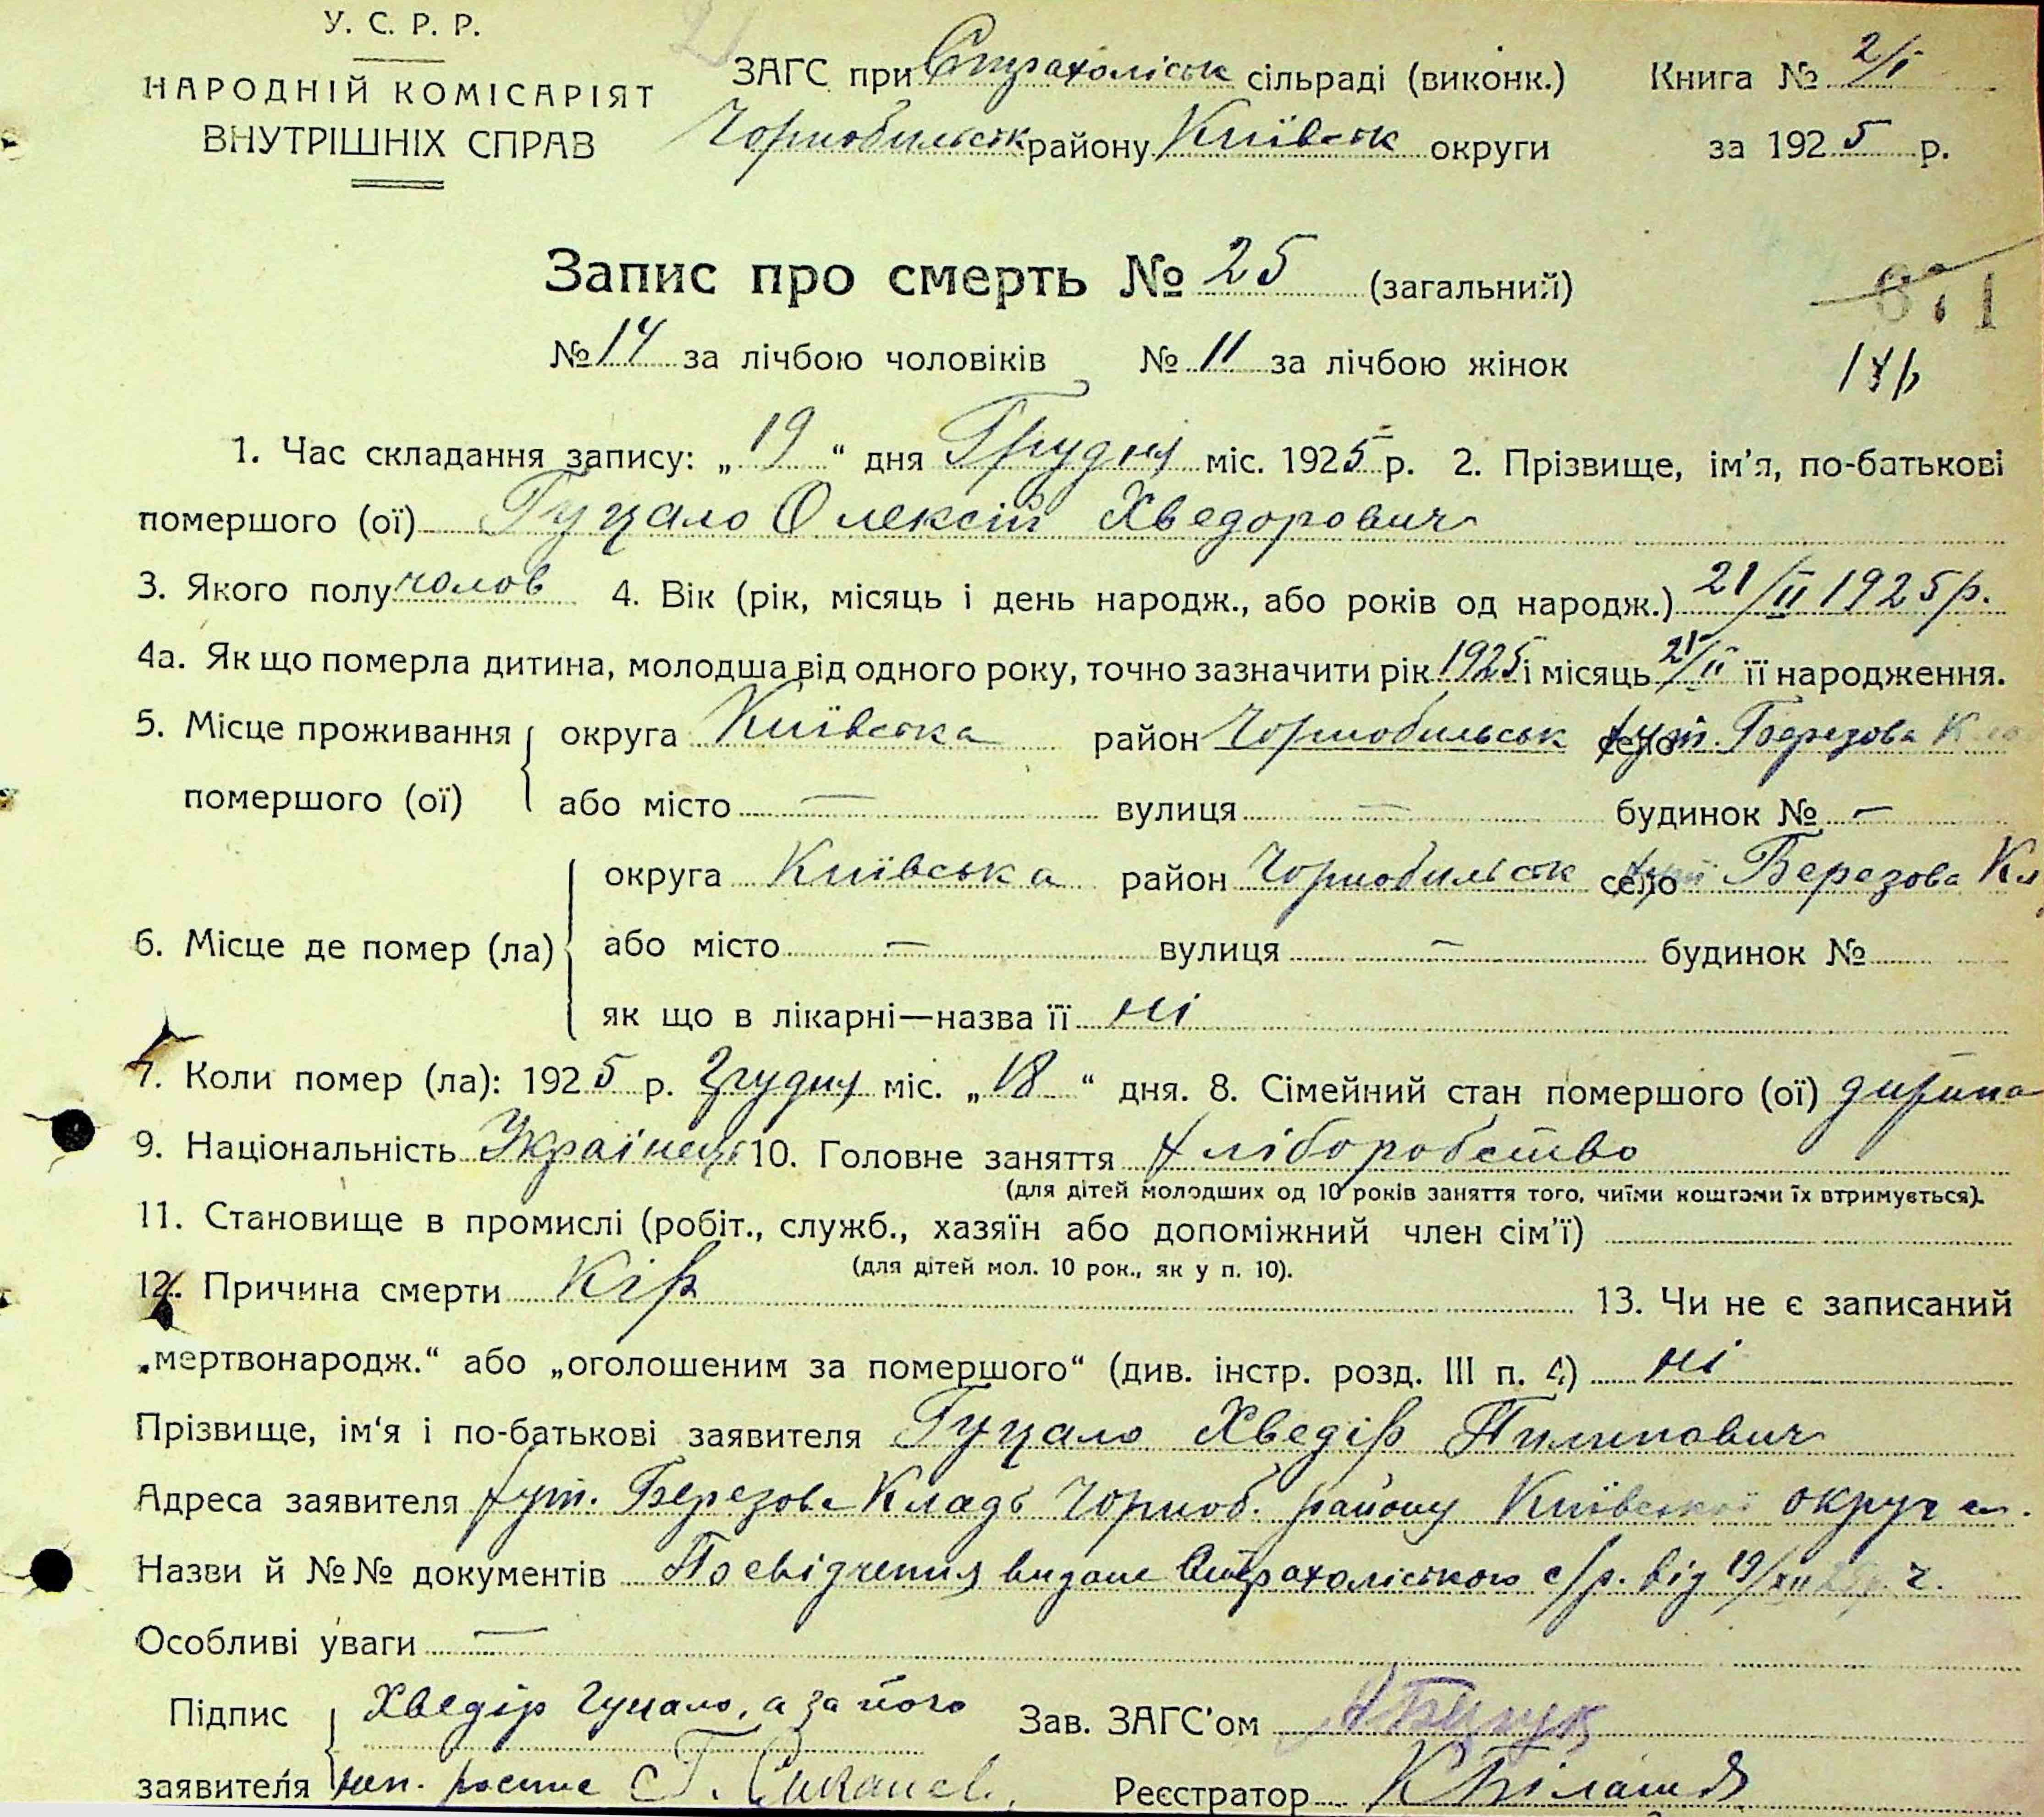 У. С. Р. Р.
НАРОДНІЙ КОМІСАРІЯТ
ВНУТРІШНІХ СПРАВ
ЗАГС при Страхоліськ сільраді (виконк.) Книга № 2/I
Чорнобильськ району Київськ округи за 1925 р.
Запис про смерть № 25 (загальний)
№ 14 за лічбою чоловіків № 11 за лічбою жінок
1. Час складання запису: „19“ дня Грудня міс. 1925 р. 2. Прізвище, ім'я, по-батькові
помершого (ої) Гуцало Олексій Хведорович
3. Якого полу чолов 4. Вік (рік, місяць і день народж., або років од народж.) 21/II 1925 р.
4а. Як що померла дитина, молодша від одного року, точно зазначити рік 1925 і місяць 21/II її народження.
5. Місце проживання округа Київська район Чорнобильськ село хут. Березова
помершого (ої) або місто — вулиця — будинок № —
округа Київська район Чорнобильськ село хут Березова Кл
6. Місце де помер (ла) або місто — вулиця — будинок №
як що в лікарні—назва її ні
7. Коли помер (ла): 1925 р. Грудня міс. „18“ дня. 8. Сімейний стан помершого (ої) дитина
9. Національність Українець 10. Головне заняття хліборобство
(для дітей молодших од 10 років заняття того, чиїми коштами їх втримується).
11. Становище в промислі (робіт., служб., хазяїн або допоміжний член сім'ї)
(для дітей мол. 10 рок., як у п. 10).
12. Причина смерти Кір 13. Чи не є записаний
„мертвонародж.“ або „оголошеним за помершого“ (див. інстр. розд. III п. 4) ні
Прізвище, ім'я і по-батькові заявителя Гуцало Хведір Пилипович
Адреса заявителя хут. Березова Кладь Чорноб. району Київської округи.
Назви й №№ документів Посвідчення видане Страхоліською с/р. від 19/XII
Особливі уваги —
Підпис Хведір Гуцало, а за його Зав. ЗАГС'ом
заявителя неп. росписе Реєстратор К Білаш